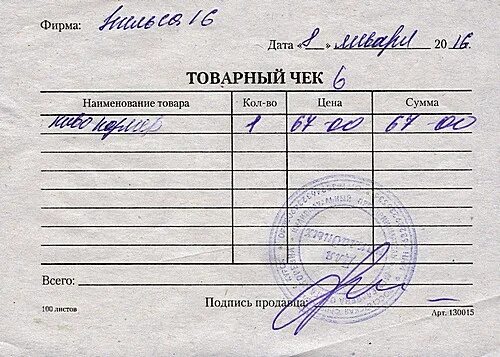 Фирма: Нильса 16
Дата «8» января 2016.
ТОВАРНЫЙ ЧЕК 6
Наименование товара Кол-во Цена Сумма
1 67-00 67-00
Всего:
Подпись продавца:
100 листов Арт. 130015